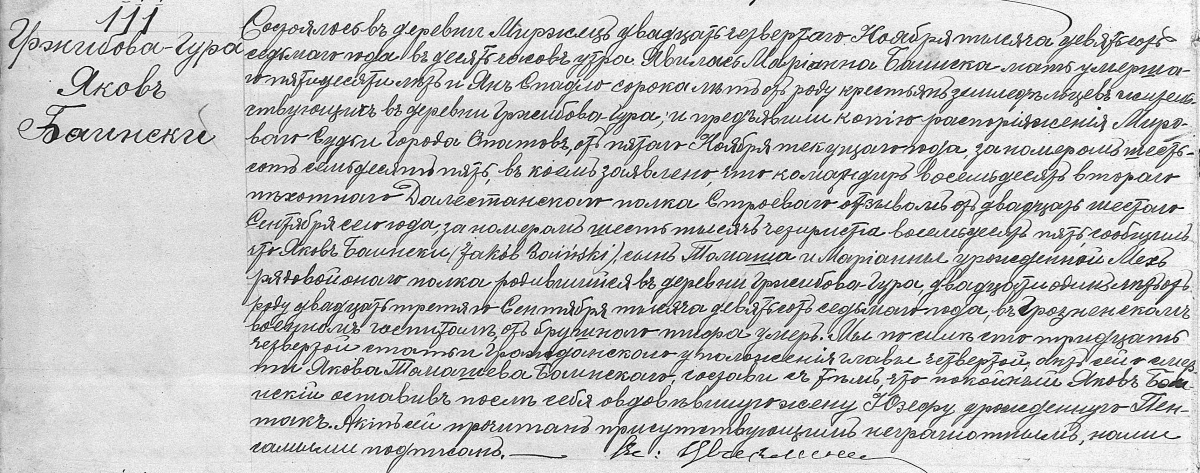 111
Гржибова-Гура
Яковъ
Баински
Состоялось въ деревни Миржецъ двадцать четвертаго Ноября тысяча девятьсотъ
седьмаго года въ десять часовъ утра. Явилась Маріанна Баинска мать умерша-
го пятидесяти лѣтъ и Янъ Спадло сорока лѣтъ отъ роду крестьяне земледѣльцевъ жи
тествующихъ въ деревни Гржибова-Гура, и предъявили копію распоряженія Миро-
ваго Судьи Города Опатовъ, отъ пятаго Ноября текущаго года, за номеромъ шесть-
сотъ семьдесятъ пять, въ коемъ заявлено, что командиръ восемьдесятъ втораго
пѣхотнаго Дагестанскаго полка Строеваго отзывомъ отъ двадцать шестаго
Сентября сего года, за номеромъ шесть тысячъ четыриста восемьдесятъ пять, сообщилъ,
что Яковъ Баински (Jakób Baiński), сынъ Томаша и Маріанны урожденной Мехъ
рядовой онаго полка родившійся въ деревни Гржибова-Гура, двадцати одинъ лѣтъ отъ
роду двадцать третяго Сентября тысяча девятьсотъ седьмаго года, въ Грозненскомъ
военномъ госпиталѣ, отъ брушнаго тифа умеръ. Мы по силѣ сто тридцать
четвертой статьи Гражданскаго уположенія главы четвертой, актъ сей о смер-
ти Якова Томашева Баинскаго, состави съ тѣмъ, что покойный Яковъ Баи-
нскій оставивъ послѣ себя овдовѣвшую жену Юзефу урожденную Пен-
такъ. Актъ сей прочитанъ присутствующимъ неграмотнымъ, нами
самыми подписанъ.